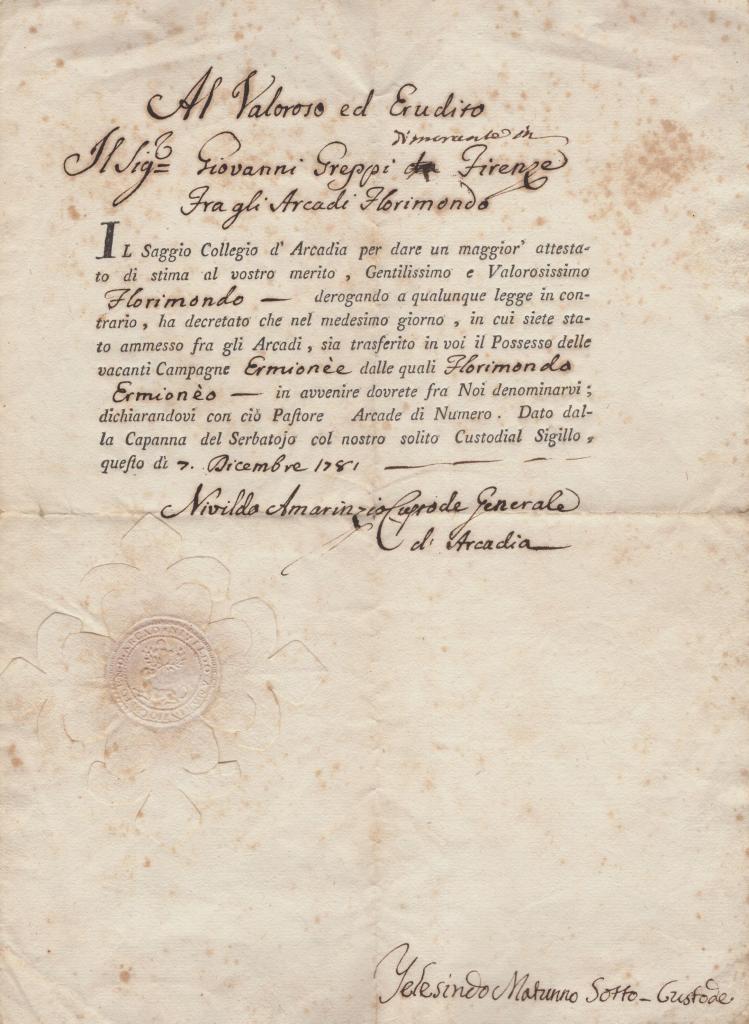 Al Valoroso ed Erudito
Dimorante in
Il Sigre Giovanni Greppi da Firenze
Fra gli Arcadi Florimondo
IL Saggio Collegio d' Arcadia per dare un maggior' attesta-
to di stima al vostro merito, Gentilissimo e Valorosissimo
Florimondo — derogando a qualunque legge in con-
trario, ha decretato che nel medesimo giorno, in cui siete sta-
to ammesso fra gli Arcadi, sia trasferito in voi il Possesso delle
vacanti Campagne Ermionèe dalle quali Florimondo
Ermionèo — in avvenire dovrete fra Noi denominarvi;
dichiarandovi con ciò Paſtore Arcade di Numero. Dato dal-
la Capanna del Serbatojo col nostro solito Custodial Sigillo,
queſto dì 7. Dicembre 1781 —
Nivildo Amarinzio Custode Generale
di Arcadia
NIVILDO
Custode